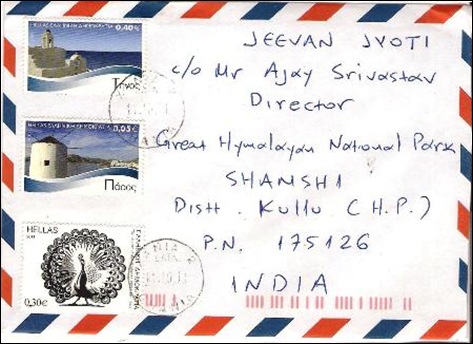 ΕΛΛΑΣ ΕΛΛΗΝΙΚΗ ΔΗΜΟΚΡΑΤΙΑ 0,40€
Τήνος
0,05€
Πάρος
HELLAS
0,30€
JEEVAN JYOTI
c/o Mr Ajay Srivastav
Director
Great Hymalayan National Park
SHAMSHI
Distt. Kullu (H.P.)
P.N. 175126
INDIA